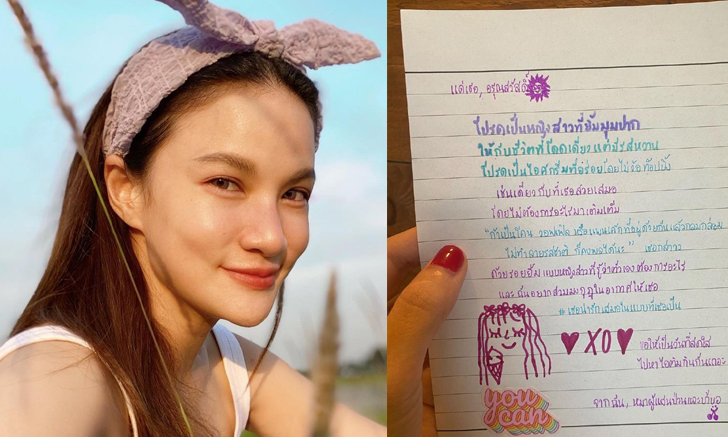 แด่เธอ, อรุณสวัสดิ์
โปรดเป็นหญิงสาวที่ยิ้มมุมปาก
ให้กับชีวิตที่โดดเดี่ยวแต่มีรสหวาน
โปรดเป็นไอศกรีมที่อร่อยโดยไม่ง้อท็อปปิ้ง
เช่นเดียวกับที่เธอสวยเสมอ
โดยไม่ต้องการอะไรมาเติมเต็ม
"ถ้าเป็นโคน วอฟเฟิล หรือแพนเค้กที่อยู่ด้วยกันแล้วกลมกล่อม
ไม่ทำลายรสชาติ ก็คงพอได้นะ" เธอกล่าว
ด้วยรอยยิ้ม แบบหญิงสาวที่รู้ว่าตัวเองต้องการอะไร
และฉันอยากสวมมงกุฎในอากาศให้เธอ
เธอน่ารักเสมอในแบบที่เธอเป็น
♥ XO ♥
ขอให้เป็นวันที่สดใส
ไปหาไอติมกินกันเถอะ
you can
จากฉัน, หมาผู้แสนป่วนและเบี้ยว